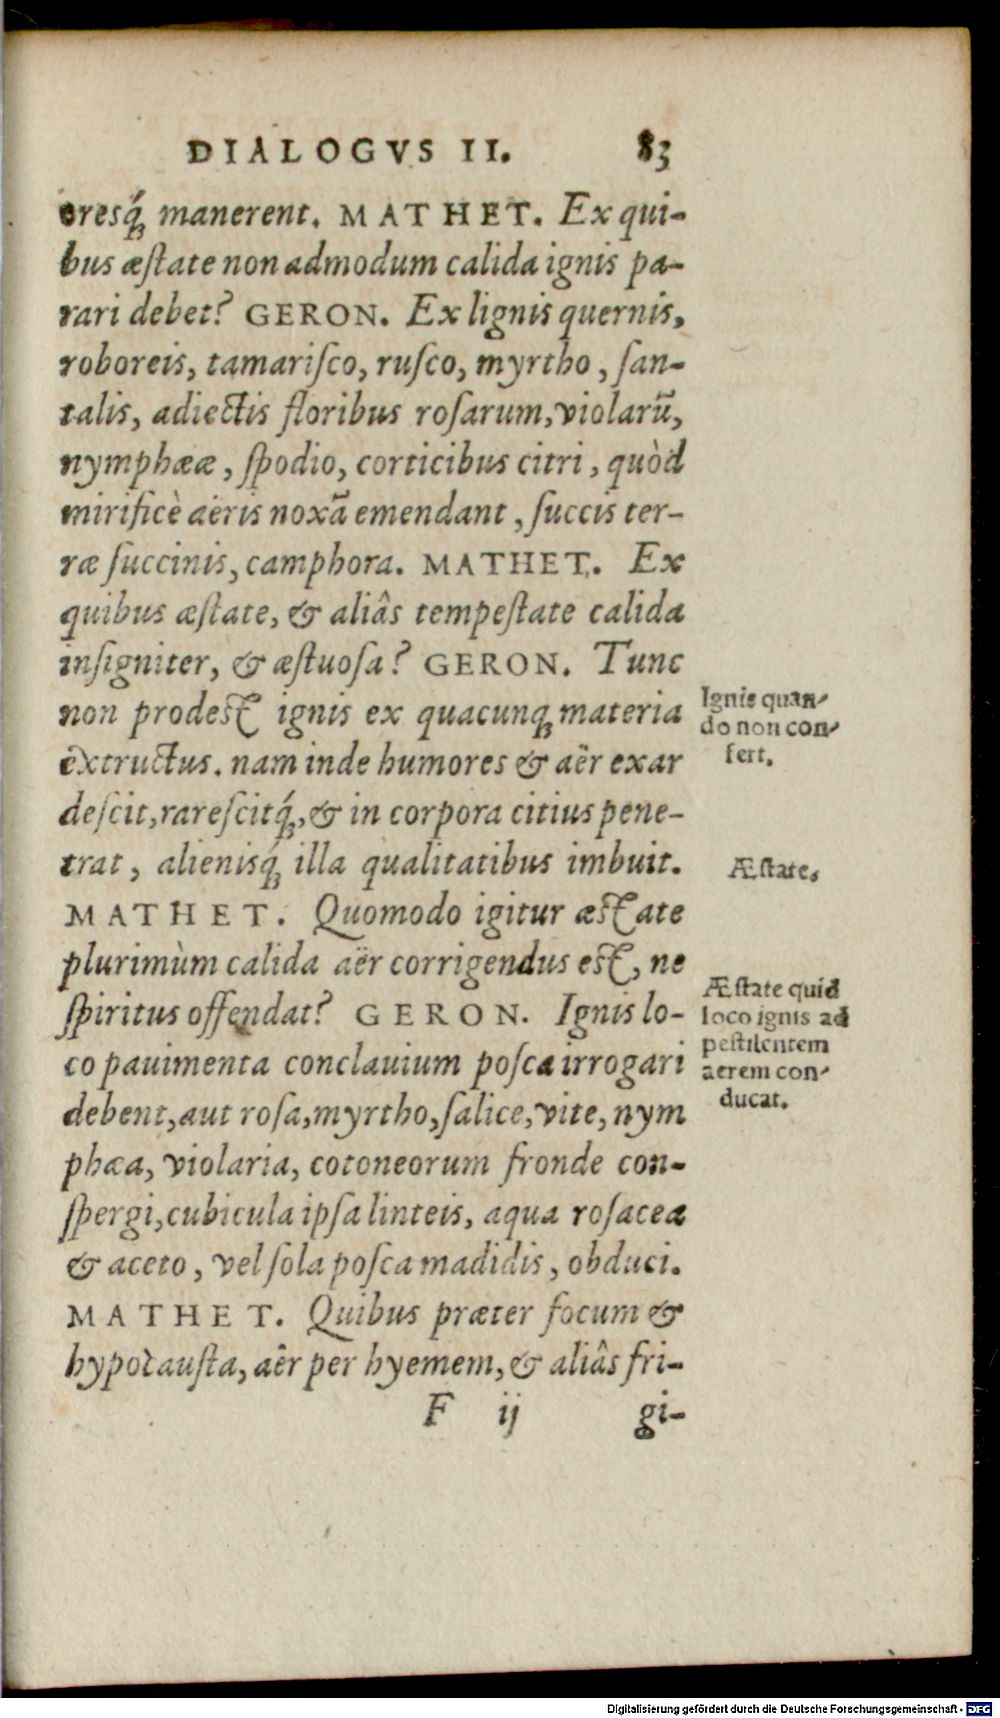 DIALOGVS II. 83
oresq́; manerent. MATHET. Ex qui-
bus æstate non admodum calida ignis pa-
rari debet? GERON. Ex lignis quernis,
roboreis, tamarisco, rusco, myrtho, san-
talis, adiectis floribus rosarum, violarū,
nymphææ, spodio, corticibus citri, quòd
mirificè aëris noxā emendant, succis ter-
ræ succinis, camphora. MATHET. Ex
quibus æstate, & aliâs tempestate calida
insigniter, & æstuosa? GERON. Tunc
non prodest ignis ex quacunq; materia
extructus. nam inde humores & aër exar
descit, rarescitq́;, & in corpora citius pene-
trat, alienisq́; illa qualitatibus imbuit.
MATHET. Quomodo igitur æstate
plurimùm calida aër corrigendus est, ne
spiritus offendat? GERON. Ignis lo-
co pauimenta conclauium posca irrogari
debent, aut rosa, myrtho, salice, vite, nym
phæa, violaria, cotoneorum fronde con-
spergi, cubicula ipsa linteis, aqua rosacea
& aceto, vel sola posca madidis, obduci.
MATHET. Quibus præter focum &
hypocausta, aër per hyemem, & aliâs fri-
F ij gi-
Ignis quan-
do non con-
fert.
Æstate.
Æstate quid
loco ignis ad
pestilentem
aerem con-
ducat.
Digitalisierung gefördert durch die Deutsche Forschungsgemeinschaft - DFG